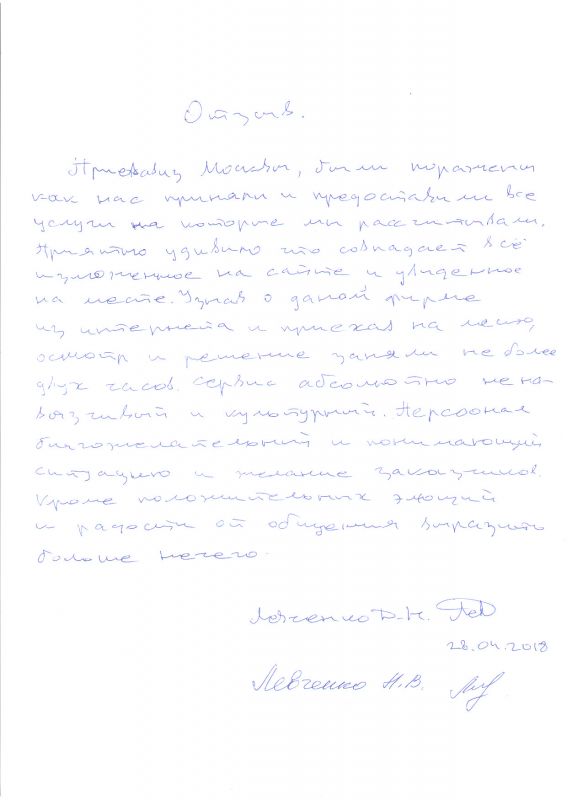 Отзыв.
Приехав из Москвы, были поражены
как нас приняли и предоставили все
услуги на которые мы рассчитывали.
Приятно удивило что совпадает всё
изложенное на сайте и увиденное
на месте. Узнав о даной фирме
из интернета и приехав на место,
осмотр и решение заняли не более
двух часов. Сервис абсолютно нена-
вязчивый и культурный. Персонал
благожелательный и понимающий
ситуацию и желание заказчиков.
Кроме положительных эмоций
и радости от общения выразить
больше нечего.
Левченко Д.Н.
28.04.2018
Левченко Н.В.